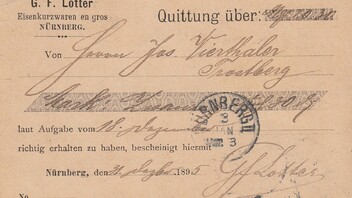 G. F. Lotter
Eisenkurzwaren en gros
NÜRNBERG.
Quittung über:
Von Herrn Jos. Vierthaler
Trostberg
Mark:
laut Aufgabe vom 18. Dezember
richtig erhalten zu haben, bescheinigt hiermit
NÜRNBERG I
3
JAN
Nürnberg, den 31. Dezbr. 1895 G. F. Lotter
No.